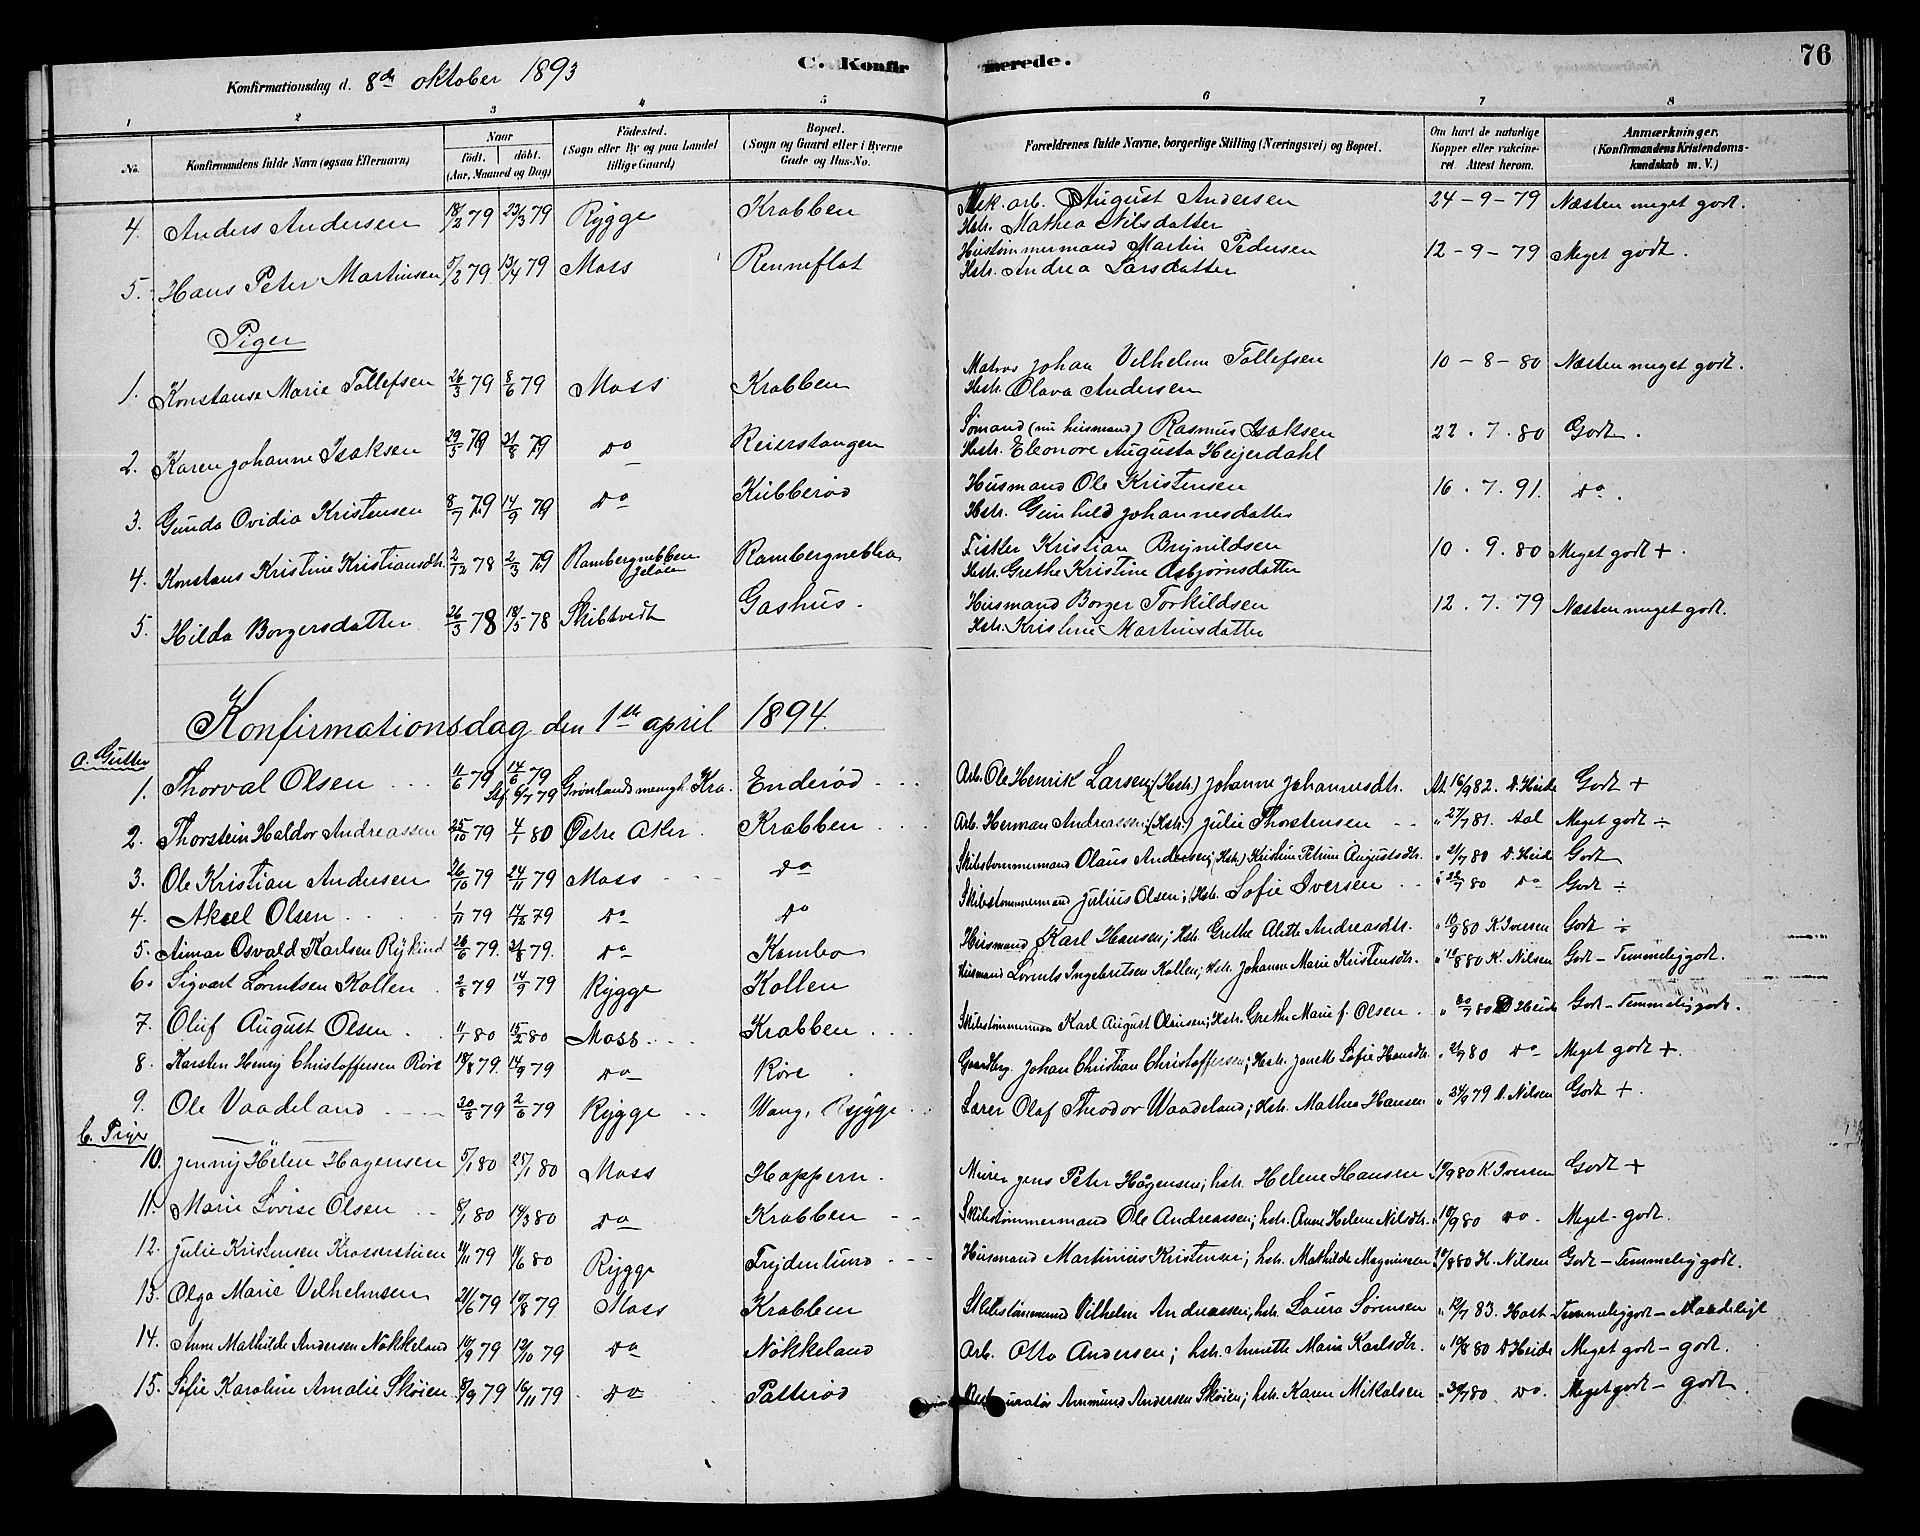 Konfirmationsdag d. 8de oktober 1893 C. Konfirmerede. 76
1 2 3 4 5 6 7 8
No. Konfirmandens fulde Navn (ogsaa Efternavn) Naar født. døbt. (Aar, Maaned og Dag) Fødested. (Sogn eller By og paa Landet tillige Gaard) Bopæl. (Sogn og Gaard eller i Byerne Gade og Hus-No. Forældrenes fulde Navne, borgerlige Stilling (Næringsvei) og Bopæl. Om havt de naturlige Kopper eller vakcineret Attest herom. Anmærkninger. (Konfirmandens Kristendomskundskab m. V.)
4. Anders Andersen 18/2 79 23/3 79 Rygge Krabben Mek. arb. August Andersen 24-9-79 Næsten meget godt.
Hstr. Mathea Nilsdatter
5. Hans Peter Martinsen 5/2 79 13/4 79 Moss Renneflot Hustømmermand Martin Pedersen 12-9-79 Meget godt.
Hstr. Andrea Larsdatter
Piger
1. Konstanse Marie Tollefsen 26/3 79 8/6 79 Moss Krabben Matros Johan Vilhelm Tollefsen 10-8-80 Næsten meget godt.
Hstr. Olava Andersen
2. Karen Johanne Isaksen 29/5 79 31/8 79 Do Reierstangen Sømand (nu husmand) Rasmus Isaksen 22.7.80 Godt.
Hstr. Eleonore Augusta Heijerdahl
3. Gunda Ovidia Kristensen 8/7 79 14/9 79 Do Kubberød Husmand Ole Kristensen 16.7.91. Do.
Hstr. Gunhild Johannesdatter
4. Konstans Kristine Kristiansdtr. 2/12 78 2/3 79 Rambergnebben Jeløen Rambergnebben Fisker Kristian Brynildsen 10.9.80 Meget godt +.
Hstr. Grethe Kristine Asbjørnsdatter
5. Hilda Borgersdatter 26/3 78 18/5 78 Skibtvedt Gashus. Husmand Borger Torkildsen 12.7.79 Næsten meget godt.
Hstr. Kristine Martinsdatter
Konfirmationsdag den 1ste april 1894.
a. Gutter
1. Thorval Olsen 11/6 79 14/6 79 Stf. 6/7 79 Grønlands menigh. Kra. Enderød Arb. Ole Henrik Larsen; (Hstr.) Johanne Johannesdtr. At 16/9 82. D. Heide Godt +
2. Thorstein Haldor Andreassen 25/10 79 4/1 80 Østre Aker. Krabben Arb. Herman Andreassen; (Hstr.) Julie Thorstensen " 27/7 81. Aal Meget godt ÷
3. Ole Kristian Andersen 26/10 79 24/11 79 Moss Do Skibstømmermand Olaus Andersen; Hstr.) Kristine Petrine Augustsdtr. " 21/7 80 D. Heide Godt
4. Aksel Olsen 1/11 79 14/12 79 Do Do Skibstømmermand Julius Olsen; (Hstr. Sofie Iversen " 22/7 80 Do Godt ÷
5. Aimar Osvald Karlsen Rykind 26/6 79. 31/8 79. Do Kambo Husmand Karl Hansen; Hstr. Grethe Alette Andreasdtr. " 10/9 80 K. Iversen Godt ÷
6. Sigvart Lorentsen Kollen 2/8 79 14/9 79 Rygge Kollen Husmand Lorents Ingebretsen Kollen; Hstr. Johanne Marie Kristensdtr. " 18/8 80 K. Nilsen Godt - Temmelig godt.
7. Oluf August Olsen 11/1 80 15/2 80 Moss Krabben Skibstømmerman Karl August Olausen; Hstr. Grethe Marie f. Olsen " 20/7 80 D Heide Godt - Temmelig godt.
8. Karsten Henry Christoffersen Røre 18/8 79. 14/9 79 Do Røre Gaardbrg. Johan Christian Christoffersen; Hstr. Janette Sofie Hansdtr. " 21/7 80 Do Meget godt +.
9. Ole Vaadeland 20/3 79 2/6 79 Rygge Wang, Rygge Lærer Olaf Theodor Waadeland; Hstr. Mathea Hansen " 24/9 79 A. Nilsen Godt +.
b. Piger
10. Jenny Helene Hagensen 5/1 80 25/1 80 Moss Hoppern. Murer Jens Peter Hagensen; hstr. Helene Hansen " 17/9 80 K. Iversen Godt +
11. Marie Lovise Olsen 8/1 80 14/3 80 Do Krabben Skibstømmermand Ole Andreassen; hstr. Anne Helene Nilsdtr. " 18/9 80 Do. Meget godt.
12. Julie Kristensen Krosserstuen 11/11 79 1/6 80 Rygge Frydenlund Husmand Martinius Kristensen; hstr. Mathilde Magnussen " 17/8 80 H. Nilsen Godt - Temmelig godt.
13. Olga Marie Vilhelmsen 21/6 79 17/8 79 Moss Krabben Skibstømmermand Vilhelm Andreassen; hstr. Laura Sørensen " 19/7 83. Host Temmelig godt - Maadeligt
14. Anne Mathilde Andersen Nøkkeland 10/9 79 12/10 79 Do Nøkkeland Arb. Otto Andersen; hstr. Annette Marie Karlsdtr. " 19/8 80 D Heide Meget godt - godt.
15. Sofie Karoline Amalie Skøien 8/9 79 16/11 79 Do Patterød Ammund Andersen Skøien; hstr. Karen Mikalsen " 30/7 80 Do. Meget godt - godt.